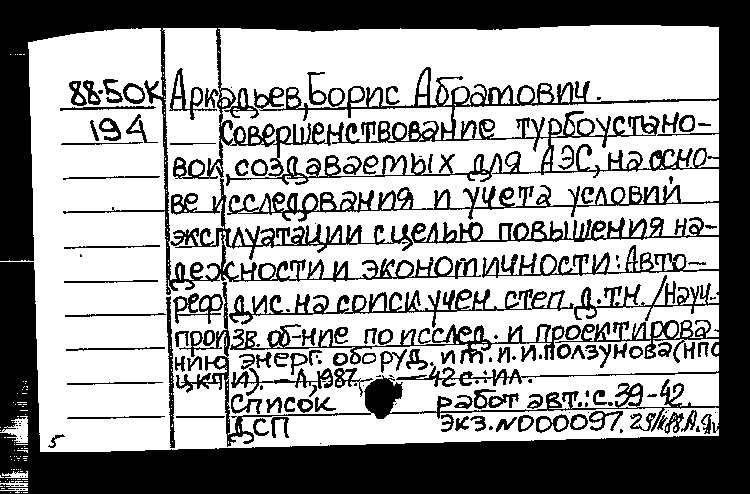 88-50К Аркадьев, Борис Абрамович.
194 Совершенствование турбоустано-
вок, создаваемых для АЭС, на осно-
ве исследования и учета условий
эксплуатации с целью повышения на-
дежности и экономичности: Авто-
реф дис. на соиск. учен. степ. д.т.н. /Науч.-
произв. об-ние по исслед. и проектирова-
нию энерг. оборуд. им. И.И.Ползунова (НПО
ЦКТИ). — Л., 1987. — 42 с.: ил.
Список работ авт.: с. 39-42.
ДСП Экз. N000097.
5